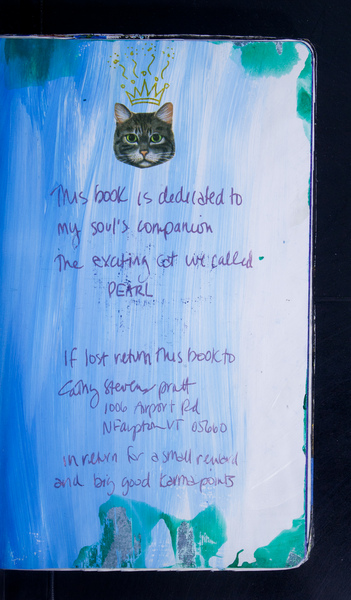 This book is dedicated to
my soul's companion
The exacting cat we called
PEARL
If lost return this book to
Cathy Stevens Pratt
1006 Airport Rd
N Fayston VT 05660
in return for a small reward
and big good karma points